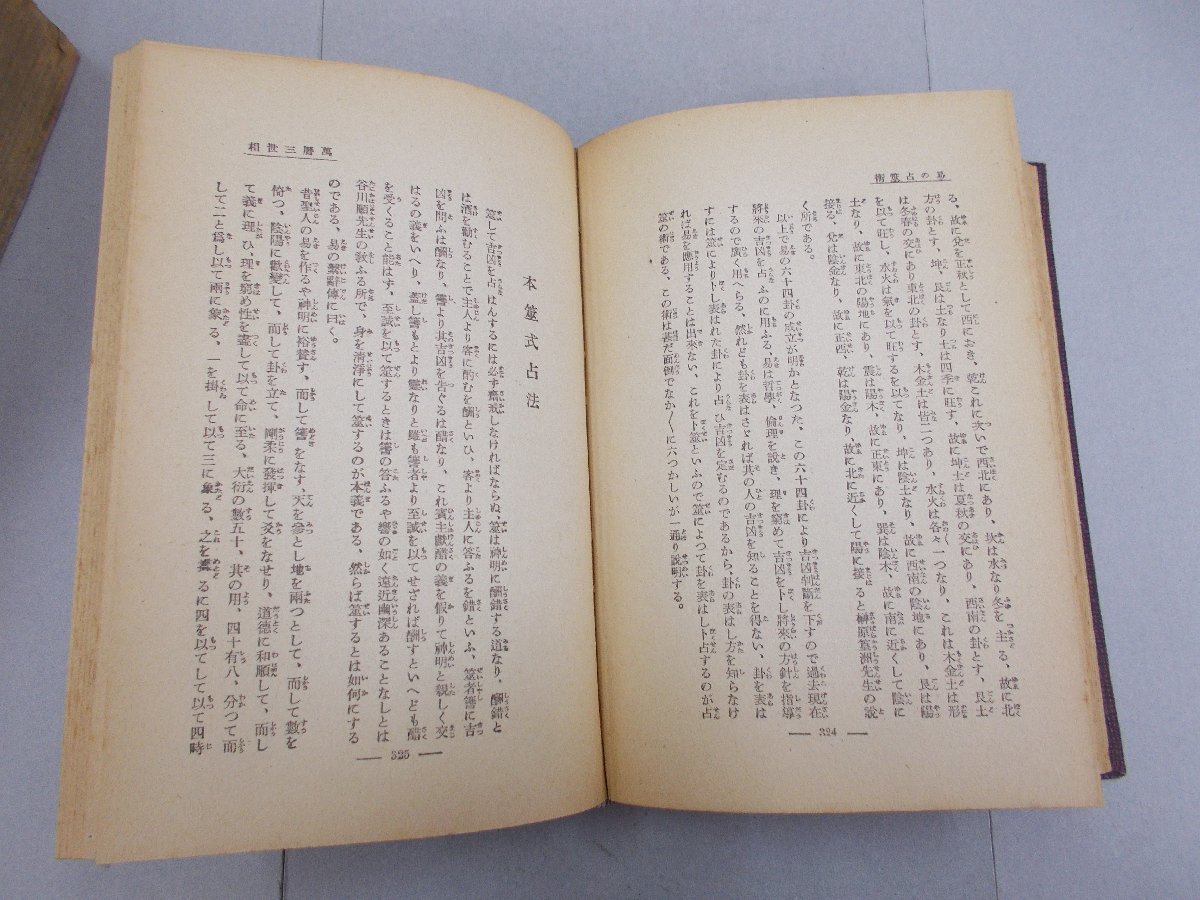 易の占筮術
る、故に兌を正秋として西におき、乾これに次いで西北にあり、坎は水なり冬を主る、故に北
方の卦とす、坤、艮は土なり土は四季に旺す、故に坤土は夏秋の交にあり、西南の卦とす、艮土
は冬春の交にあり東北の卦とす、木金土は皆二つあり、水火は各々一つなり、これは木金土は形
を以て旺し、水火は氣を以て旺するを以てなり、坤は陰土なり、故に西南の陰地にあり、艮は陽
土なり、故に東北の陽地にあり、震は陽木、故に正東にあり、巽は陰木、故に南に近くして陰に
接る、兌は陰金なり、故に正西、乾は陽金なり、故に北に近くして陽に接ると榊原篁洲先生の說
く所である。
以上で易の六十四卦の成立が明かとなつた、この六十四卦により吉凶判斷を下すので過去現在
將來の吉凶を占ふのに用ふる、易は哲學、倫理を說き、理を窮めて吉凶をトし將來の方針を指導
するので廣く用へらる、然れども卦を表はさざれば其の人の吉凶を知ることを得ない、卦を表は
すには筮によりト し表はれた卦により占ひ吉凶を定むるのであるから、卦の表はし方を知らなけ
れば易を應用することは出來ない、これをト筮といふので筮によつて卦を表はしト占するのが占
筮の術である、この術は甚だ面倒でなか〱に六つかしいが一通り說明する。
— 324 —
萬曆三世相
本筮式占法
筮して吉凶を占はんするには必ず齋戒しなければならぬ、筮は神明に酬錯する道なり、酬錯と
は酒を勸むることで主人より客に酌むを酬といひ、客より主人に答ふるを錯といふ、筮者蓍に吉
凶を問ふは酬なり、蓍より其吉凶を吿ぐるは醋なり、これ賓主獻醋の義を假りて神明と親しく交
はるの義をいへり、蓋し蓍もとより靈なりと雖も筮者より至誠を以てせざれば酬すといへども醋
を受くること能はず、至誠を以て筮するときは蓍の答ふるや響の如く遠近幽深あることなしとは
谷川順先生の敎ふる所で、身を淸淨にして筮するのが本義である、然らば筮するとは如何にする
のである、易の繫辭傳に曰く。
昔聖人の易を作るや神明に裕贊す、而して蓍をなす、天を參とし地を兩つとして、而して數を
倚つ、陰陽に觀變して、而して卦を立て、剛柔に發揮して爻をなせり、道德に和順して、而し
て義に理ひ、理を窮め性を盡して以て命に至る、大衍の數五十、其の用、四十有八、分つて而
して二と爲し以て兩に象る、一を掛して以て三に象る、之を揲るに四を以てして以て四時
— 325 —